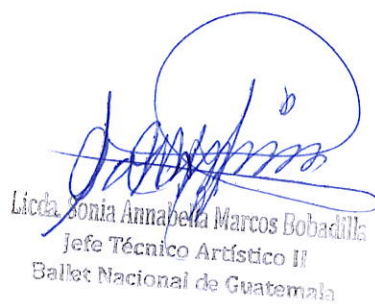 Licda. Sonia Annabella Marcos Bobadilla
Jefe Técnico Artístico II
Ballet Nacional de Guatemala